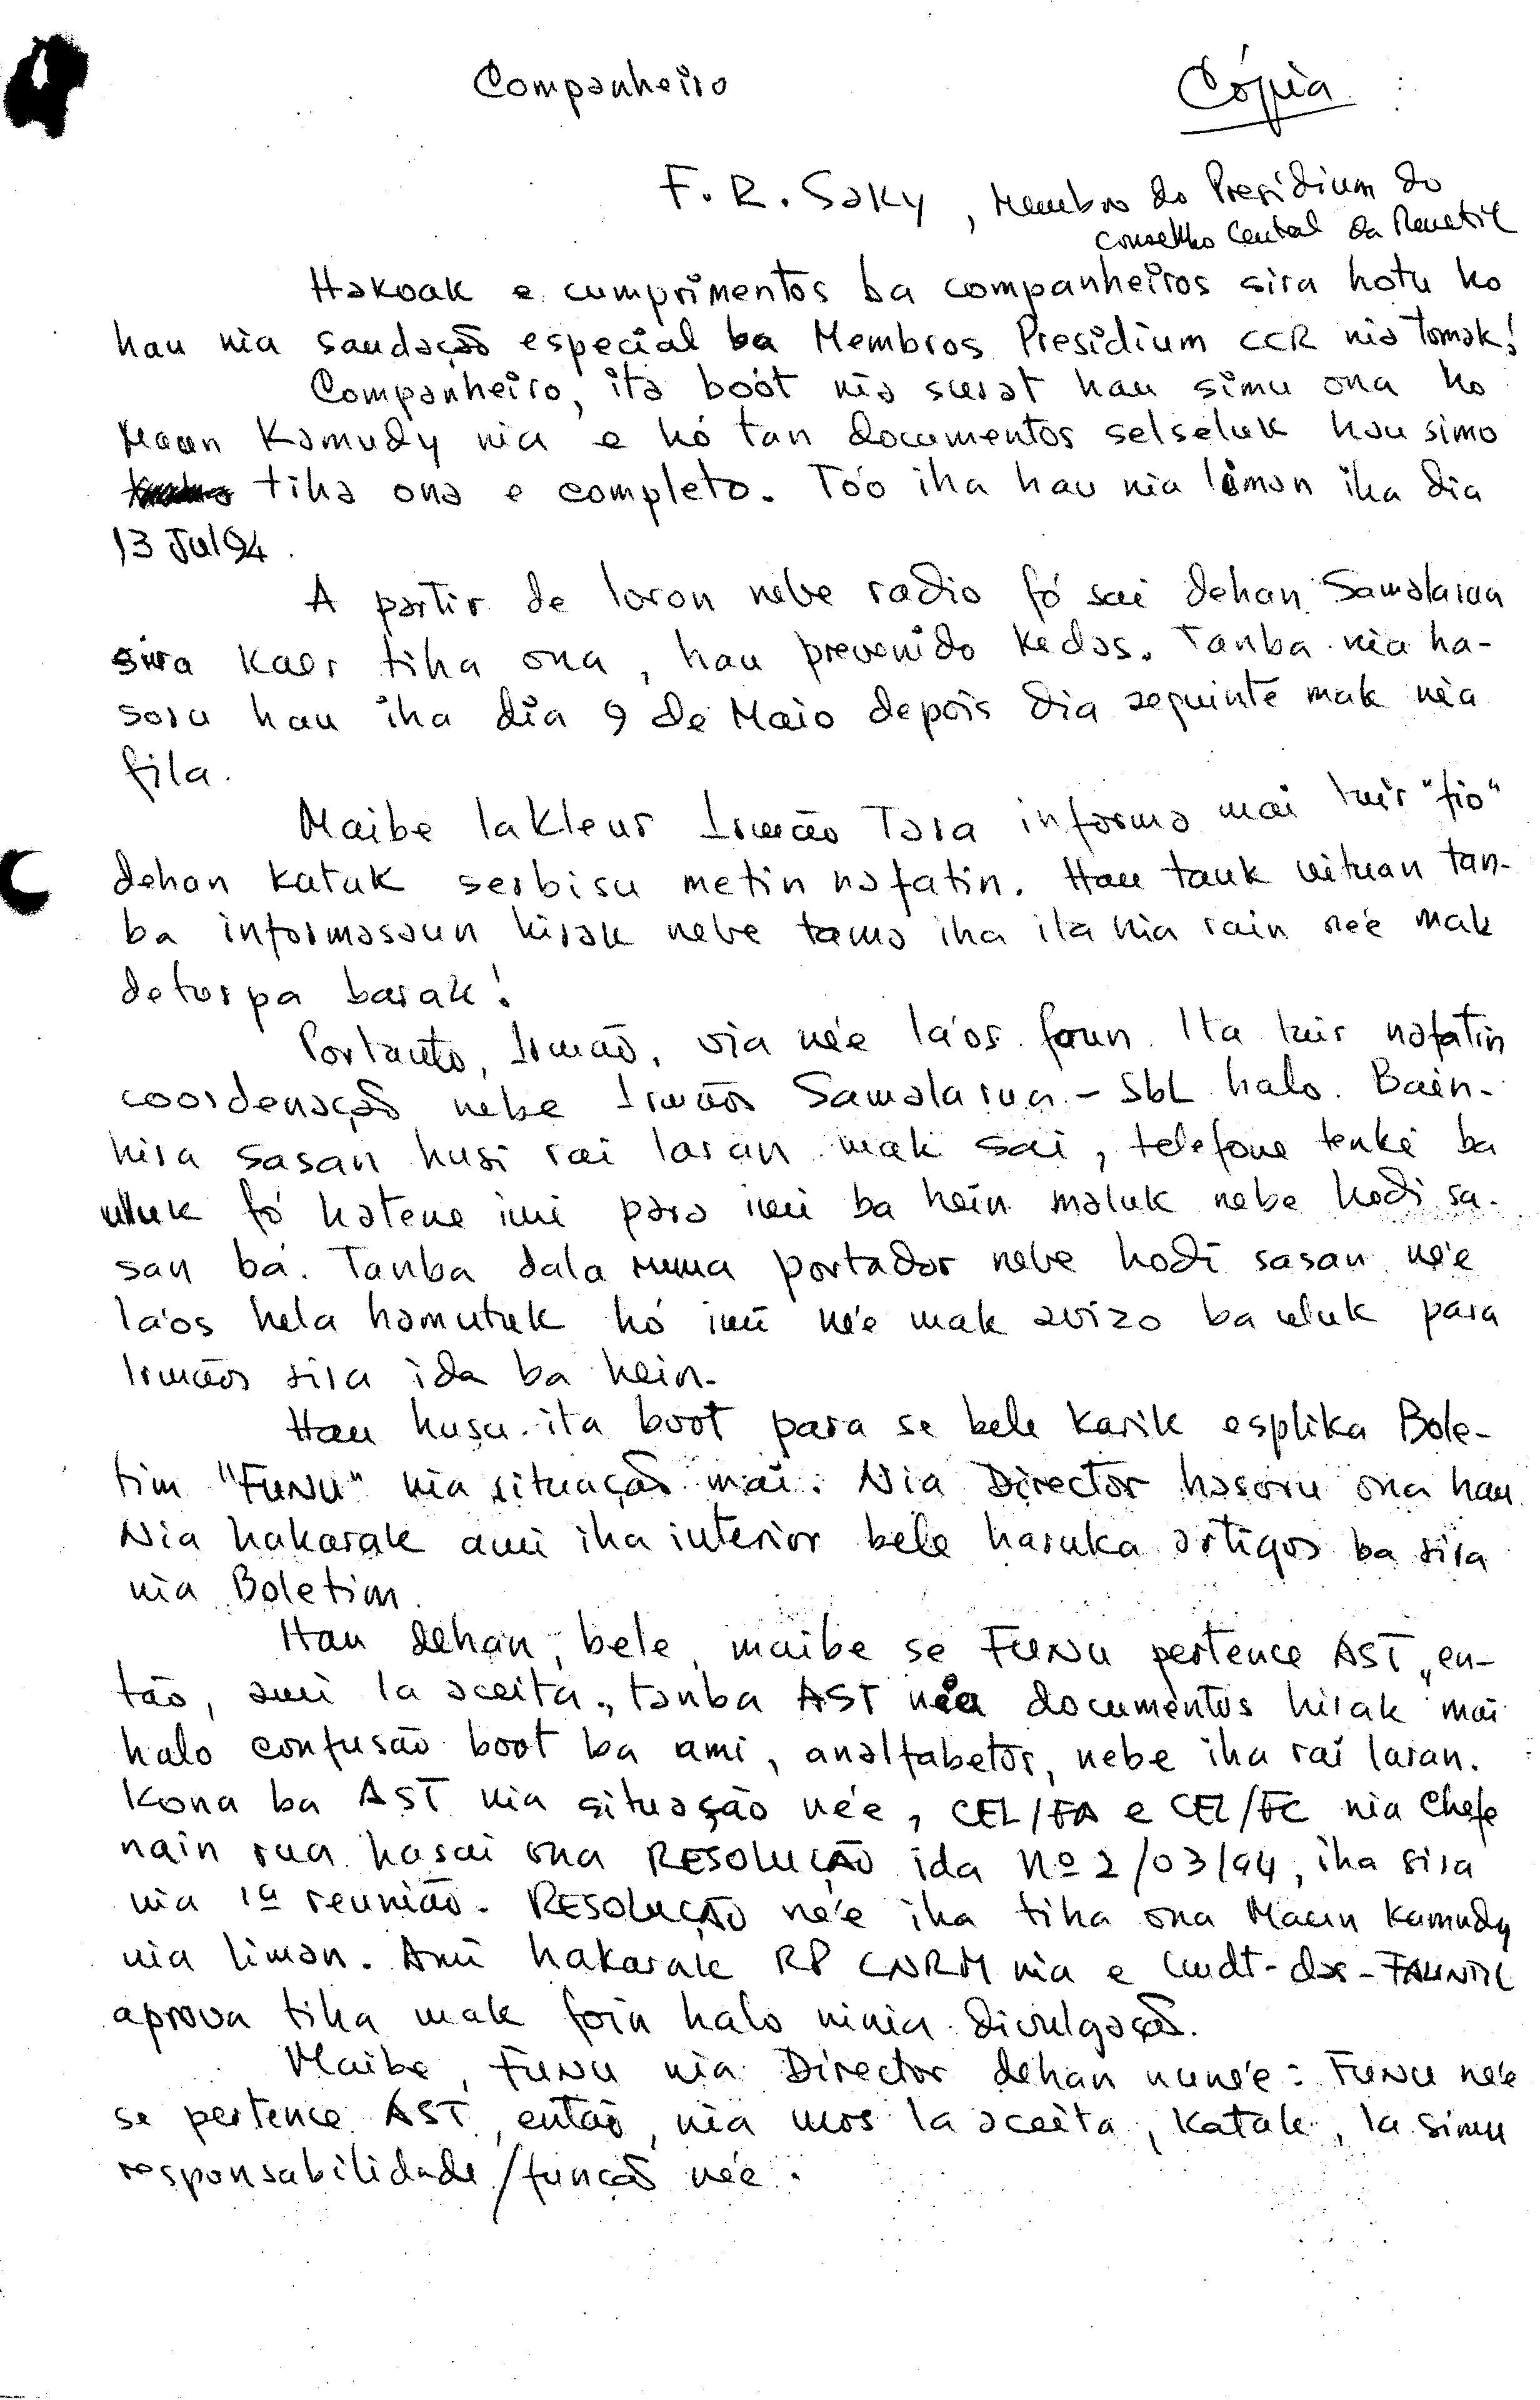 Companheiro
Cópia
F. R. Saky, Membro do Presidium do
Conselho Central da Renetil
Hakoak e cumprimentos ba companheiros sira hotu ho
hau nia saudação especial ba Membros Presidium CCR nia tomak!
Companheiro, ita boót nia surat hau simu ona ho
Maun Kamudy nia e hó tan documentos selseluk hau simo
tiha ona e completo. Tóo iha hau nia liman iha dia
13 Jul 94.
A partir de loron nebe radio fó sai dehan Samalarua
sira kaer tiha ona, hau prevenido kedas. Tanba nia ha-
soru hau iha dia 9 de Maio depois dia seguinte mak nia
fila.
Maibe lakleur Irmão Tara informa mai tuir "fio"
dehan katak serbisu metin nafatin. Hau tauk uituan tan-
ba informasaun hirak nebe tama iha ita nia rain née mak
deturpa barak!
Portanto, Irmão, via née láos foun. Ita tuir nafatin
coordenação nebe Irmãos Samalarua - SbL halo. Bain-
hira sasan husi rai laran mak sai, telefone tenke ba
uluk fó hatene imi para imi ba hein maluk nebe hodi sa-
san bá. Tanba dala ruma portador nebe hodi sasan née
láos hela hamutuk hó imi née mak avizo ba uluk para
Irmãos sira ida ba hein.
Hau husu ita boot para se bele karik esplika Bole-
tim "FUNU" nia situação mai. Nia Director hasoru ona hau.
Nia hakarak ami iha interior bele haruka artigos ba sira
nia Boletim.
Hau dehan, bele, maibe se FUNU pertence AST, en-
tão, ami la aceita, tanba AST nia documentos hirak mai
halo confusão boot ba ami, analfabetos, nebe iha rai laran.
Kona ba AST nia situação née, CEL/FA e CEL/FC nia Chefe
nain rua hasai ona RESOLUÇÃO ida nº 2/03/94, iha sira
nia 1ª reunião. RESOLUÇÃO née iha tiha ona Maun Kamudy
nia liman. Ami hakarak RP CNRM nia e Cmdt-das-FALINTIL
aprova tiha mak foin halo ninia divulgação.
Maibe, FUNU nia Director dehan nunée: FUNU née
se pertence AST, então, nia mos la aceita, katak, la simu
responsabilidade/função née.